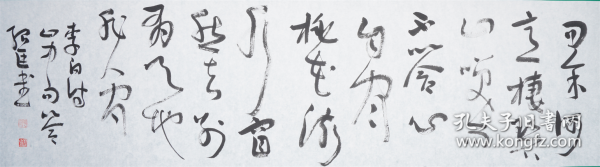 问余何
意棲碧
山笑而
不答心
自闲
桃花流
水窅
然去别
有天地
非人间
李白诗
山中问答
书
孔夫子旧书网
KONGFZ.COM